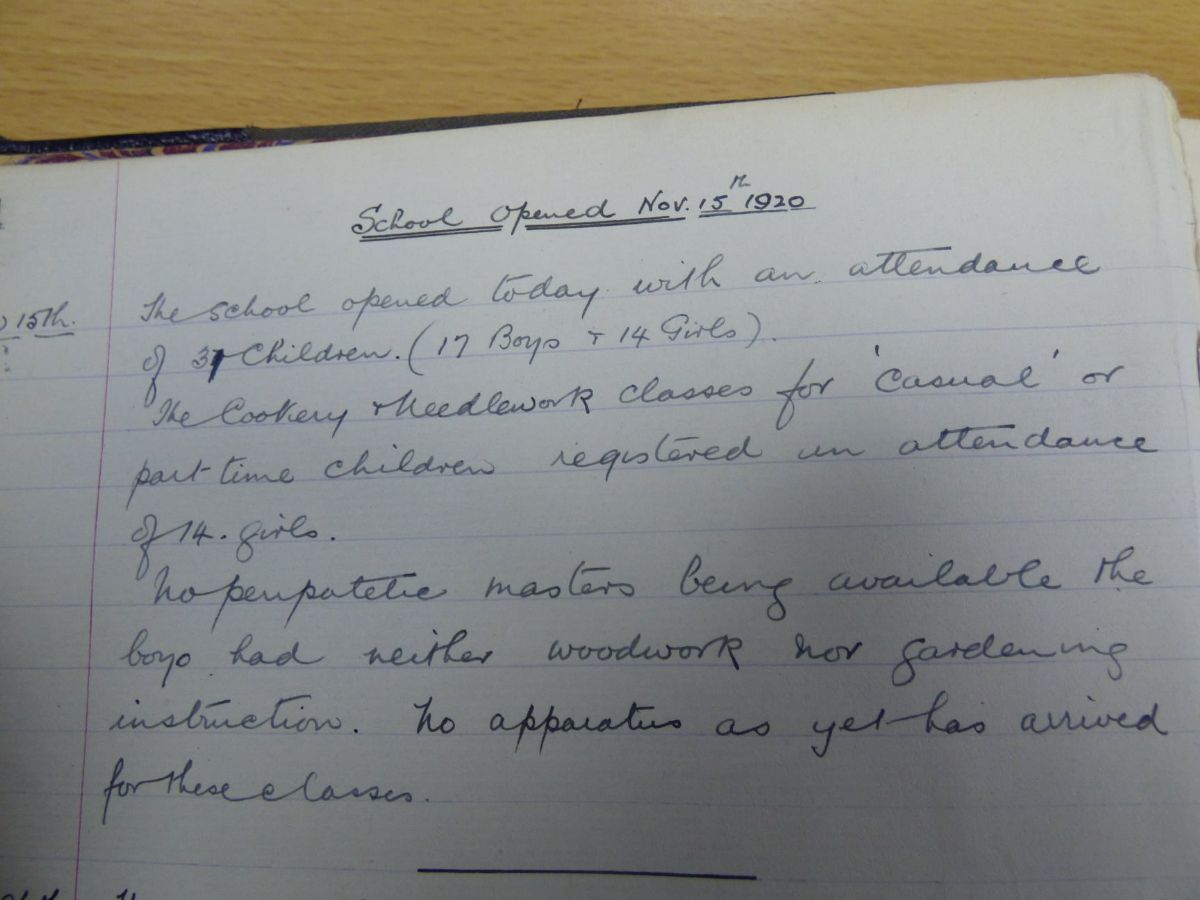 School Opened Nov. 15th 1920
15th.
The School opened today with an attendance
of 31 Children. (17 Boys + 14 Girls).
The Cookery + Needlework classes for 'Casual' or
part-time children registered an attendance
of 14. girls.
No peripatetic masters being available the
boys had neither woodwork nor gardening
instruction. No apparatus as yet has arrived
for these classes.